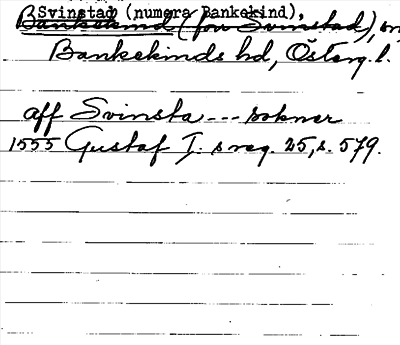 Svinstad (numera Bankekind),
Bankekind (förr Svinstad), sn
Bankekinds hd, Österg. l.
aff Svinsta --- soknær
1555 Gustaf I. s reg. 25, s. 579.